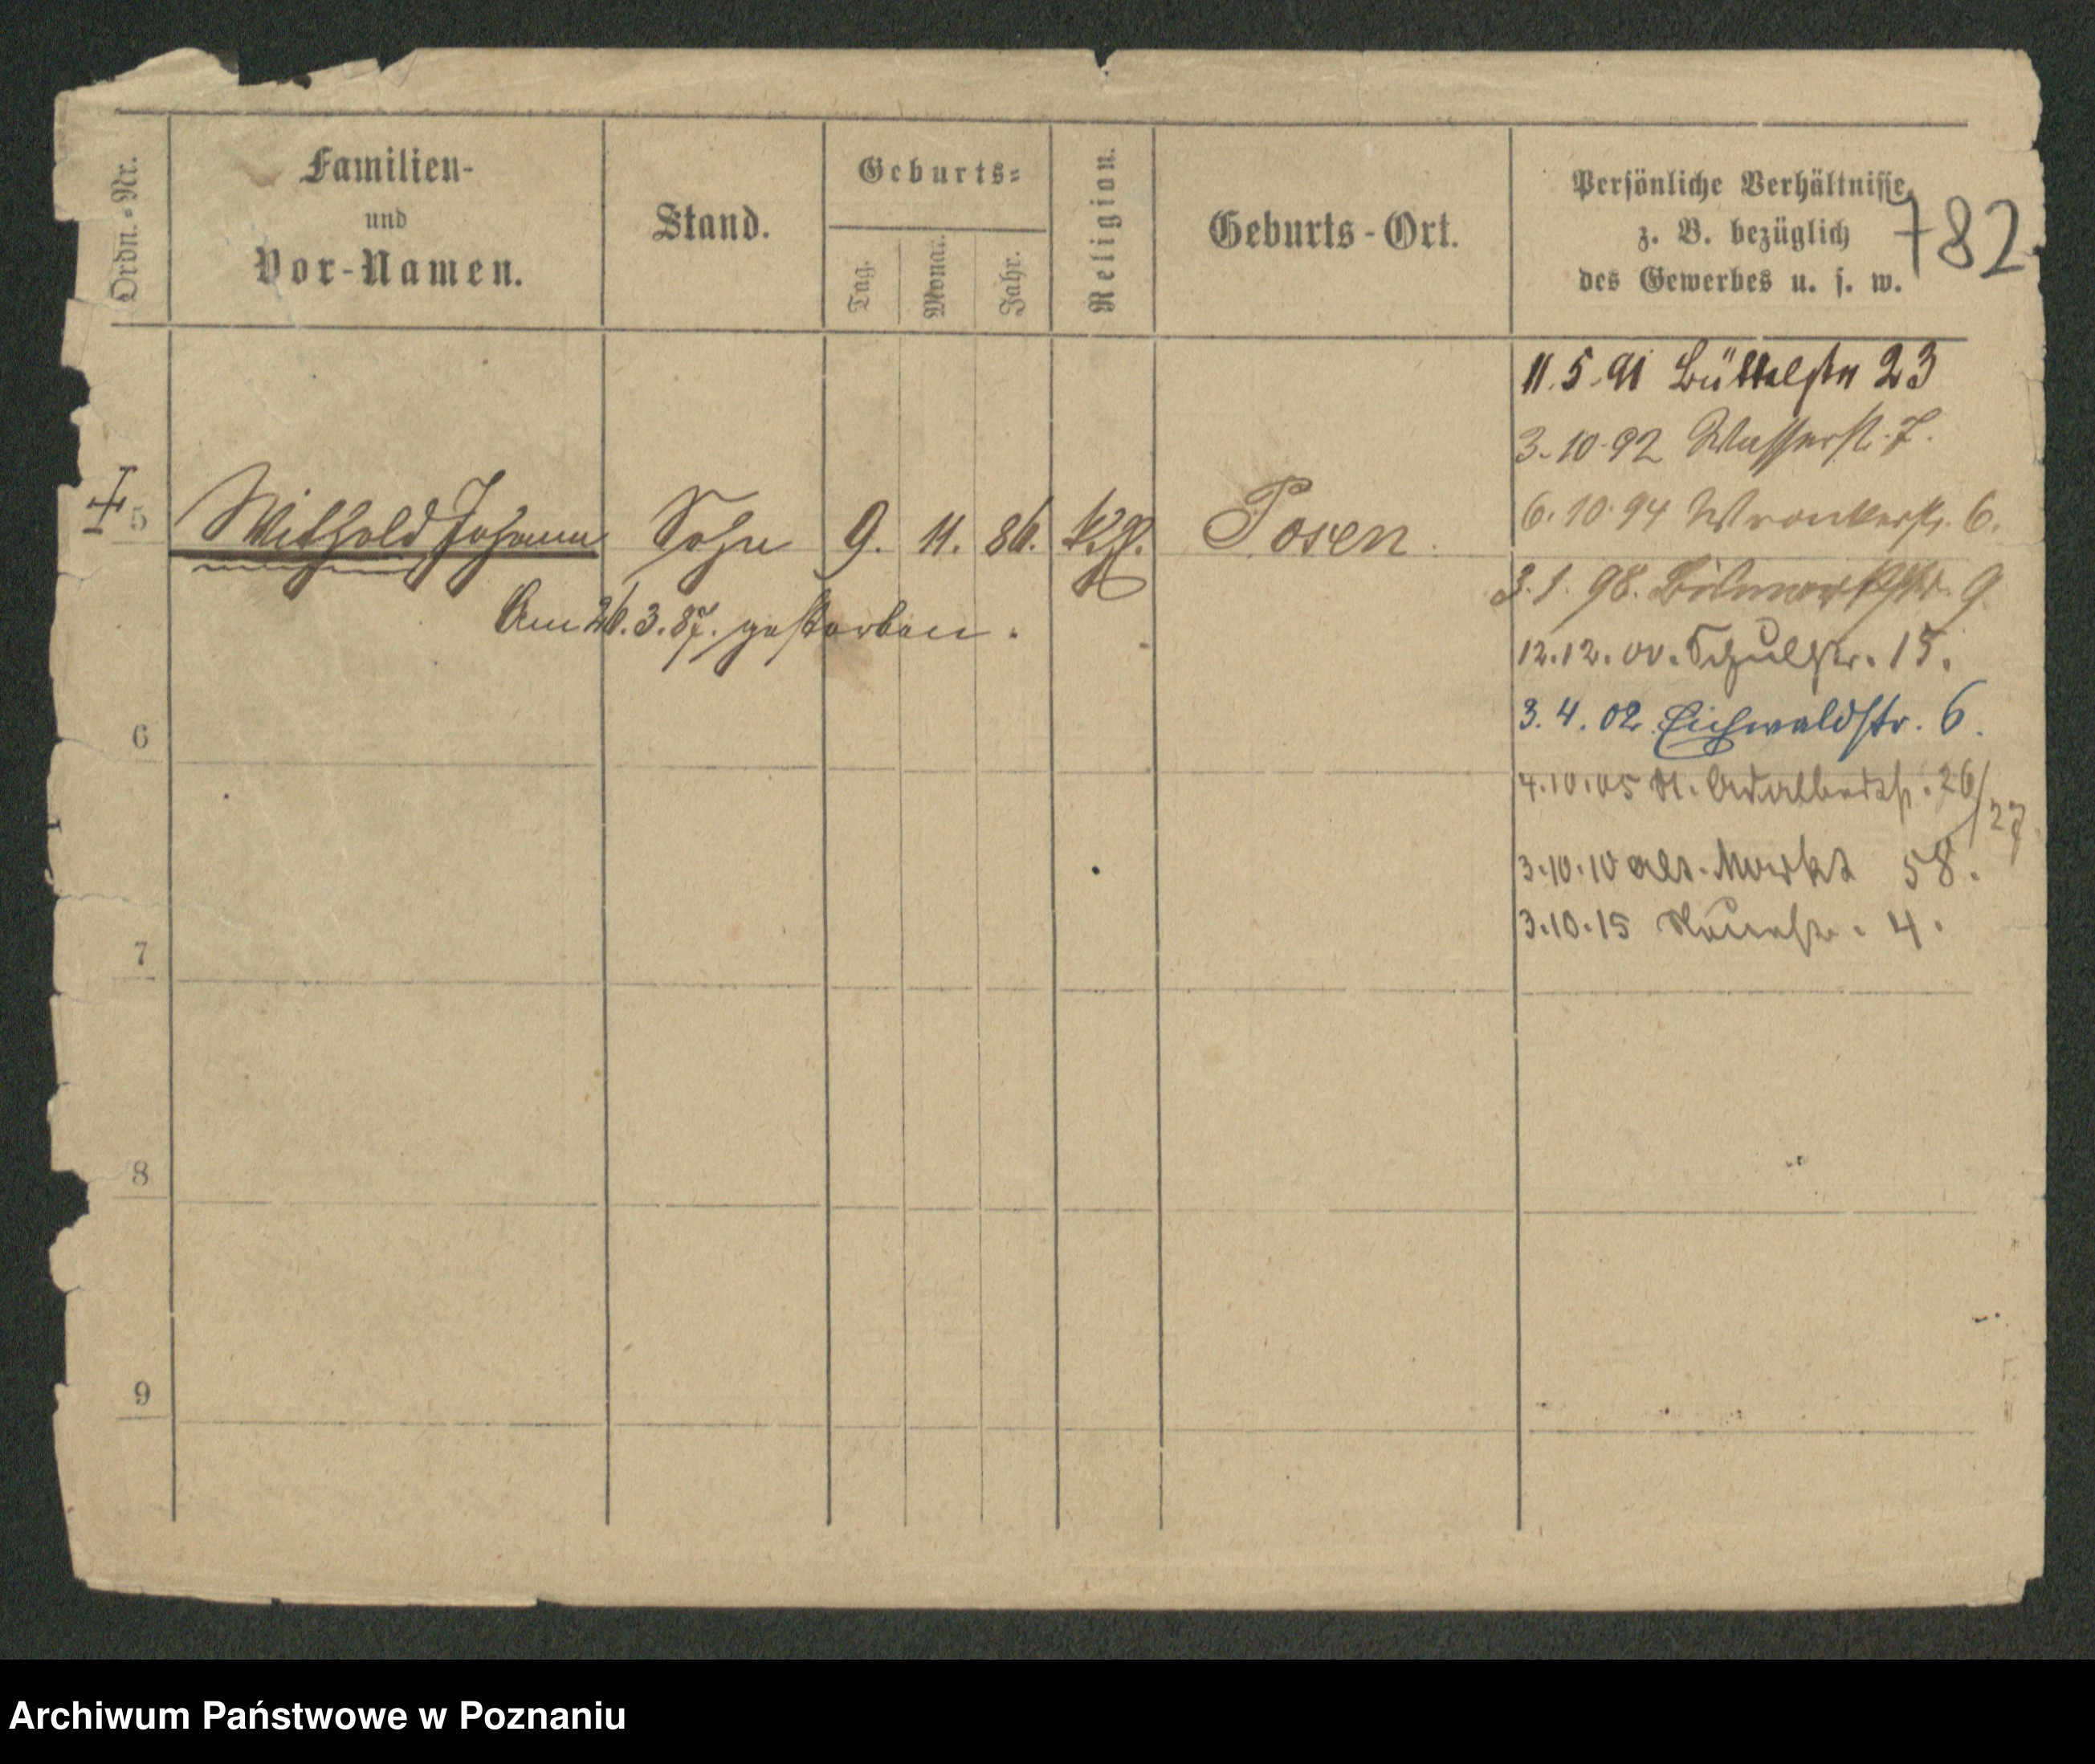 Ordn.-Nr.
Familien-
und
Vor-Namen.
Stand.
Geburts-
Tag.
Monat.
Jahr.
Religion.
Geburts-Ort.
Persönliche Verhältnisse
z. B. bezüglich
des Gewerbes u. s. w.
782
11.5.91 Büttelstr 23
3.10.92 Wasserst. 7.
6.10.94 Wronkerstr. 6.
5 Withold Johann Sohn 9. 11. 86. Posen.
Am 26.3.87. gestorben.
3.1.98. 9.
12.12.00. Schulstr. 15.
3.4.02 Eichwaldstr. 6.
6
4.10.05 St. Adalbertstr. 26/27
3.10.10 Alt. Markt 58.
3.10.15 4.
7
8
9
Archiwum Państwowe w Poznaniu